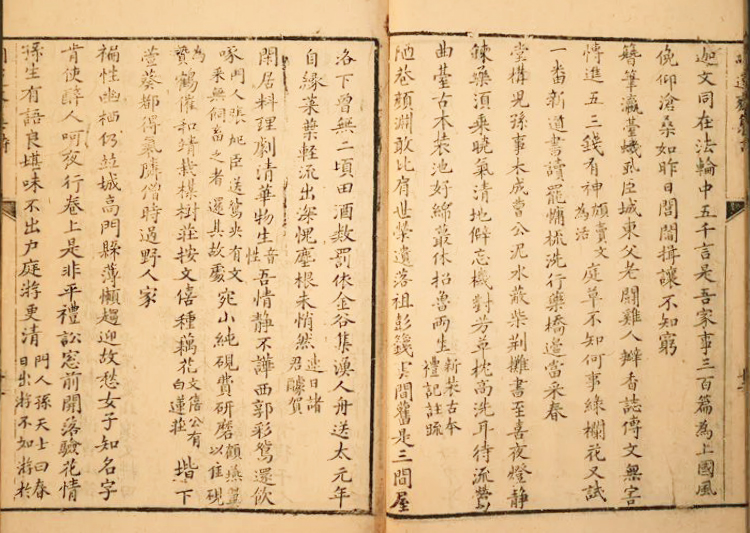 迦文同在法輪中五千言是吾家事三百篇為上國風
俛仰滄桑如昨日閭閻揖讓不知窮
簪筆瀛臺蟣虱臣城東父老鬬雞人辨香誌傳文無害
博進五三錢有神頻賣文為活庭草不知何事綠欄花又試
一番新道書讀罷慵梳洗行藥橋邊當采春
堂構兒孫事未成當公泥水蔽柴荊攤書至喜夜燈靜
鍊藥須乘曉氣清地僻忘機對芳草枕高洗耳待流鶯
曲臺古木裝池好綿蕞休招魯兩生新裝古本禮記註疏
陋巷顏淵敢比肩世榮遺落祖彭籛間舊是三間屋
洛下曾無二頃田酒数罰依金谷集漁人舟送太元年
自緣葉葉輕流出深愧塵根未悄然連日諸君醵賀
閑居料理劇清華物生音性吾情静不譁西郭彩鴛還飲
啄門人張臣送鴛央有文為來無伺畜之者還其故處宛小純硯費研磨顧燕以佳硯
贊鶴催和靖栽楳樹莊按文僖種藕花文僖公有白蓮莊堦下
萱葵都得氣隣僧時過野人家
褊性幽栖仍並城高門縣薄懶趨迎故愁女子知名字
肯使醉人呵夜行卷上是非平禮訟窓前開落驗花情
孫生有語良堪味不出户庭將更清門人孫天士曰春日出游不如游於